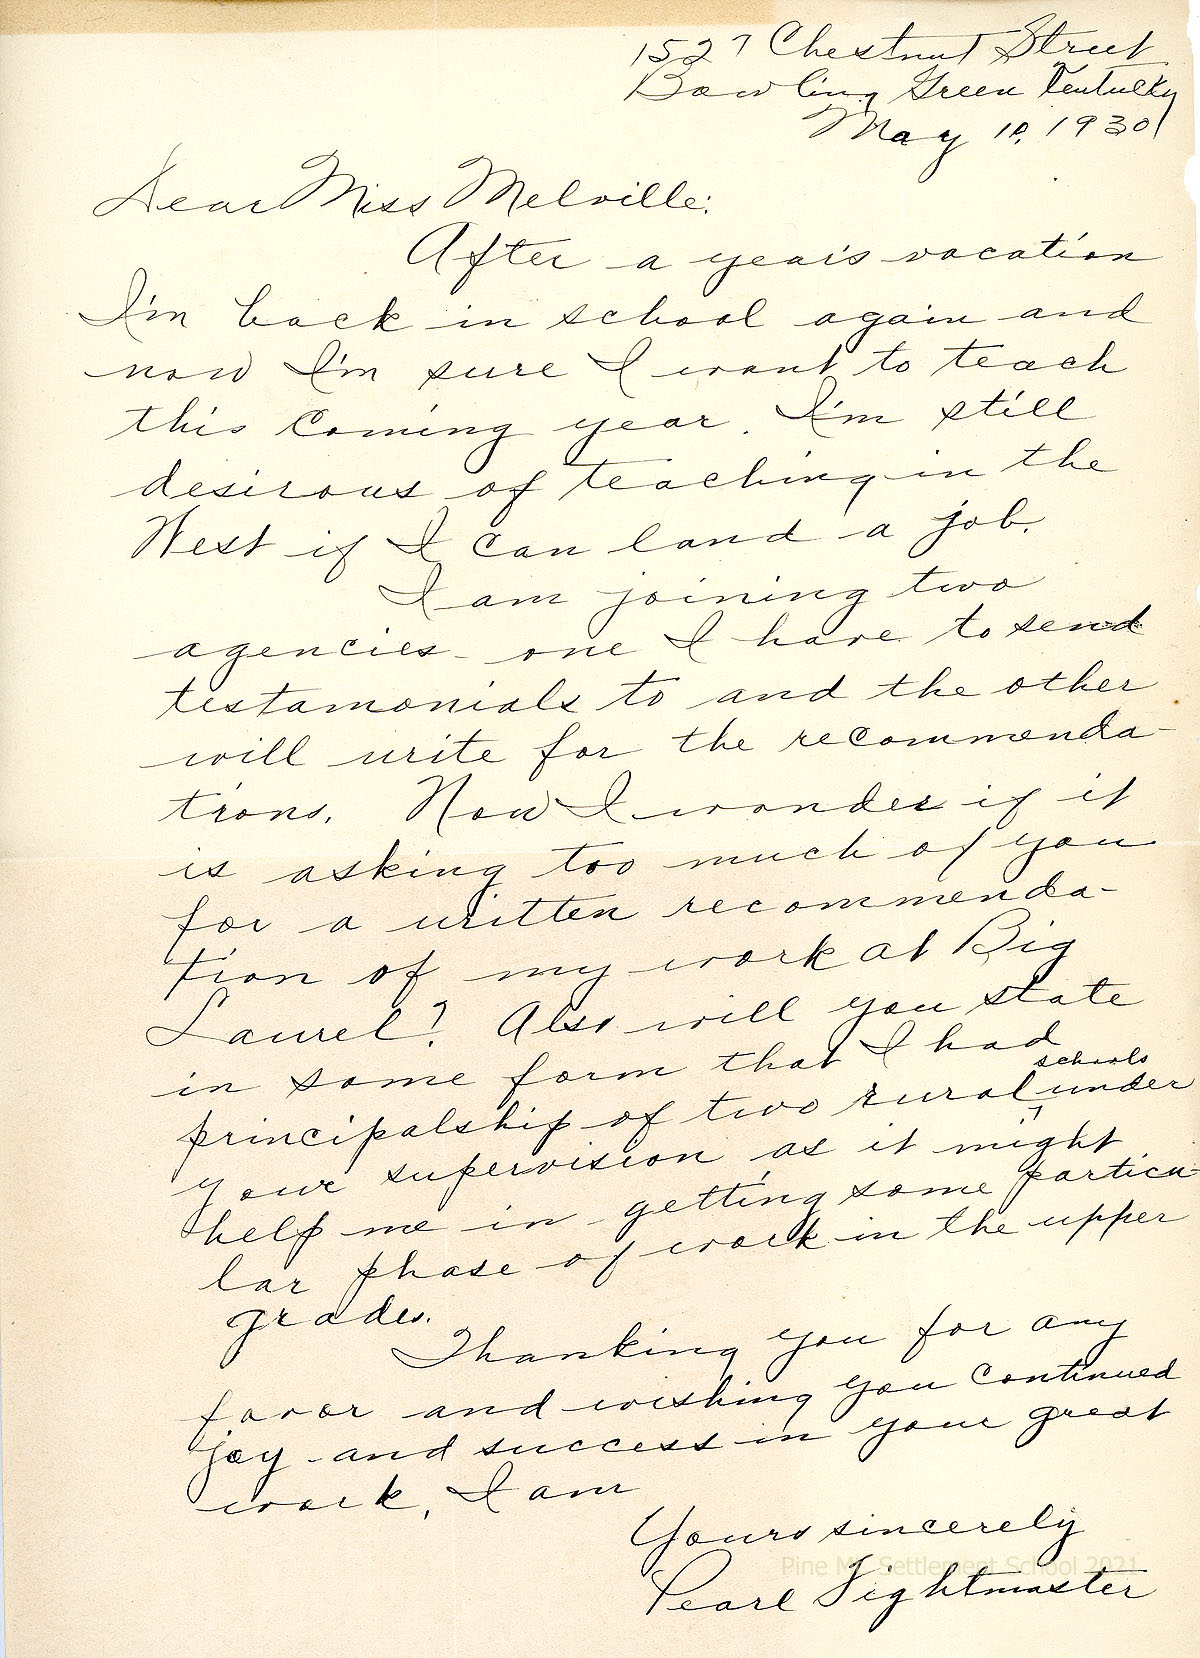 1527 Chestnut Street
Bowling Green Kentucky
May 10, 1930
Dear Miss Melville:
After a year's vacation
I'm back in school again and
now I'm sure I want to teach
this coming year. I'm still
desirous of teaching in the
West if I can land a job.
I am joining two
agencies - one I have to send
testamonials to and the other
will write for the recommenda-
tions. Now I wonder if it
is asking too much of you
for a written recommenda-
tion of my work at Big
Laurel? Also will you state
in some form that I had
schools
principalship of two rural under
your supervision as it might
help me in getting some particu-
lar phase of work in the upper
grades.
Thanking you for any
favor and wishing you continued
joy and success in your great
work, I am
Yours sincerely
Pine Mt. Settlement School 2021
Pearl Sightmaster